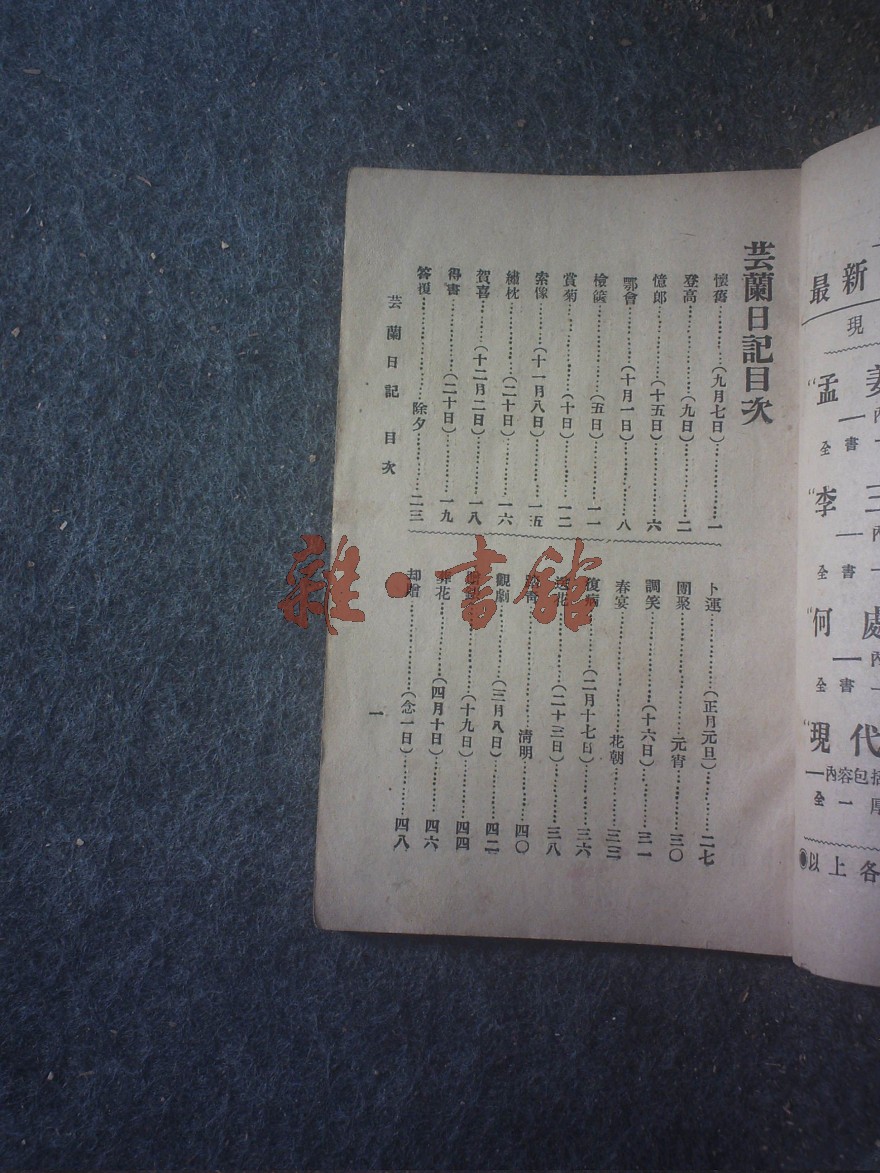 芸蘭日記目次
懷舊………(九月七日)………一
登高………(九日)………二
憶郎………(十五日)………六
鄂會………(十月一日)………八
檢篋………(五日)………一一
賞菊………(十日)………一二
索像………(十一月八日)………一五
繡枕………(二十日)………一六
賀喜………(十二月二日)………一八
得書………(二十日)………一九
答復………除夕………二三
卜運………(正月元旦)………二七
團聚………元宵………三〇
調笑………(十六日)………三一
春宴………花朝………三三
復病………(二月十七日)………三六
送花………(二十三日)………三八
清明………四〇
觀劇………(三月八日)………四二
(十九日)………四四
葬花………(四月十日)………四六
却贈………(念一日)………四八
芸蘭日記 目次
一
雜·書館
最新
現
"孟姜
全書一
"李三
全書一
"何處
全書一
"現代
—內容包括
全一厚
◉以上各